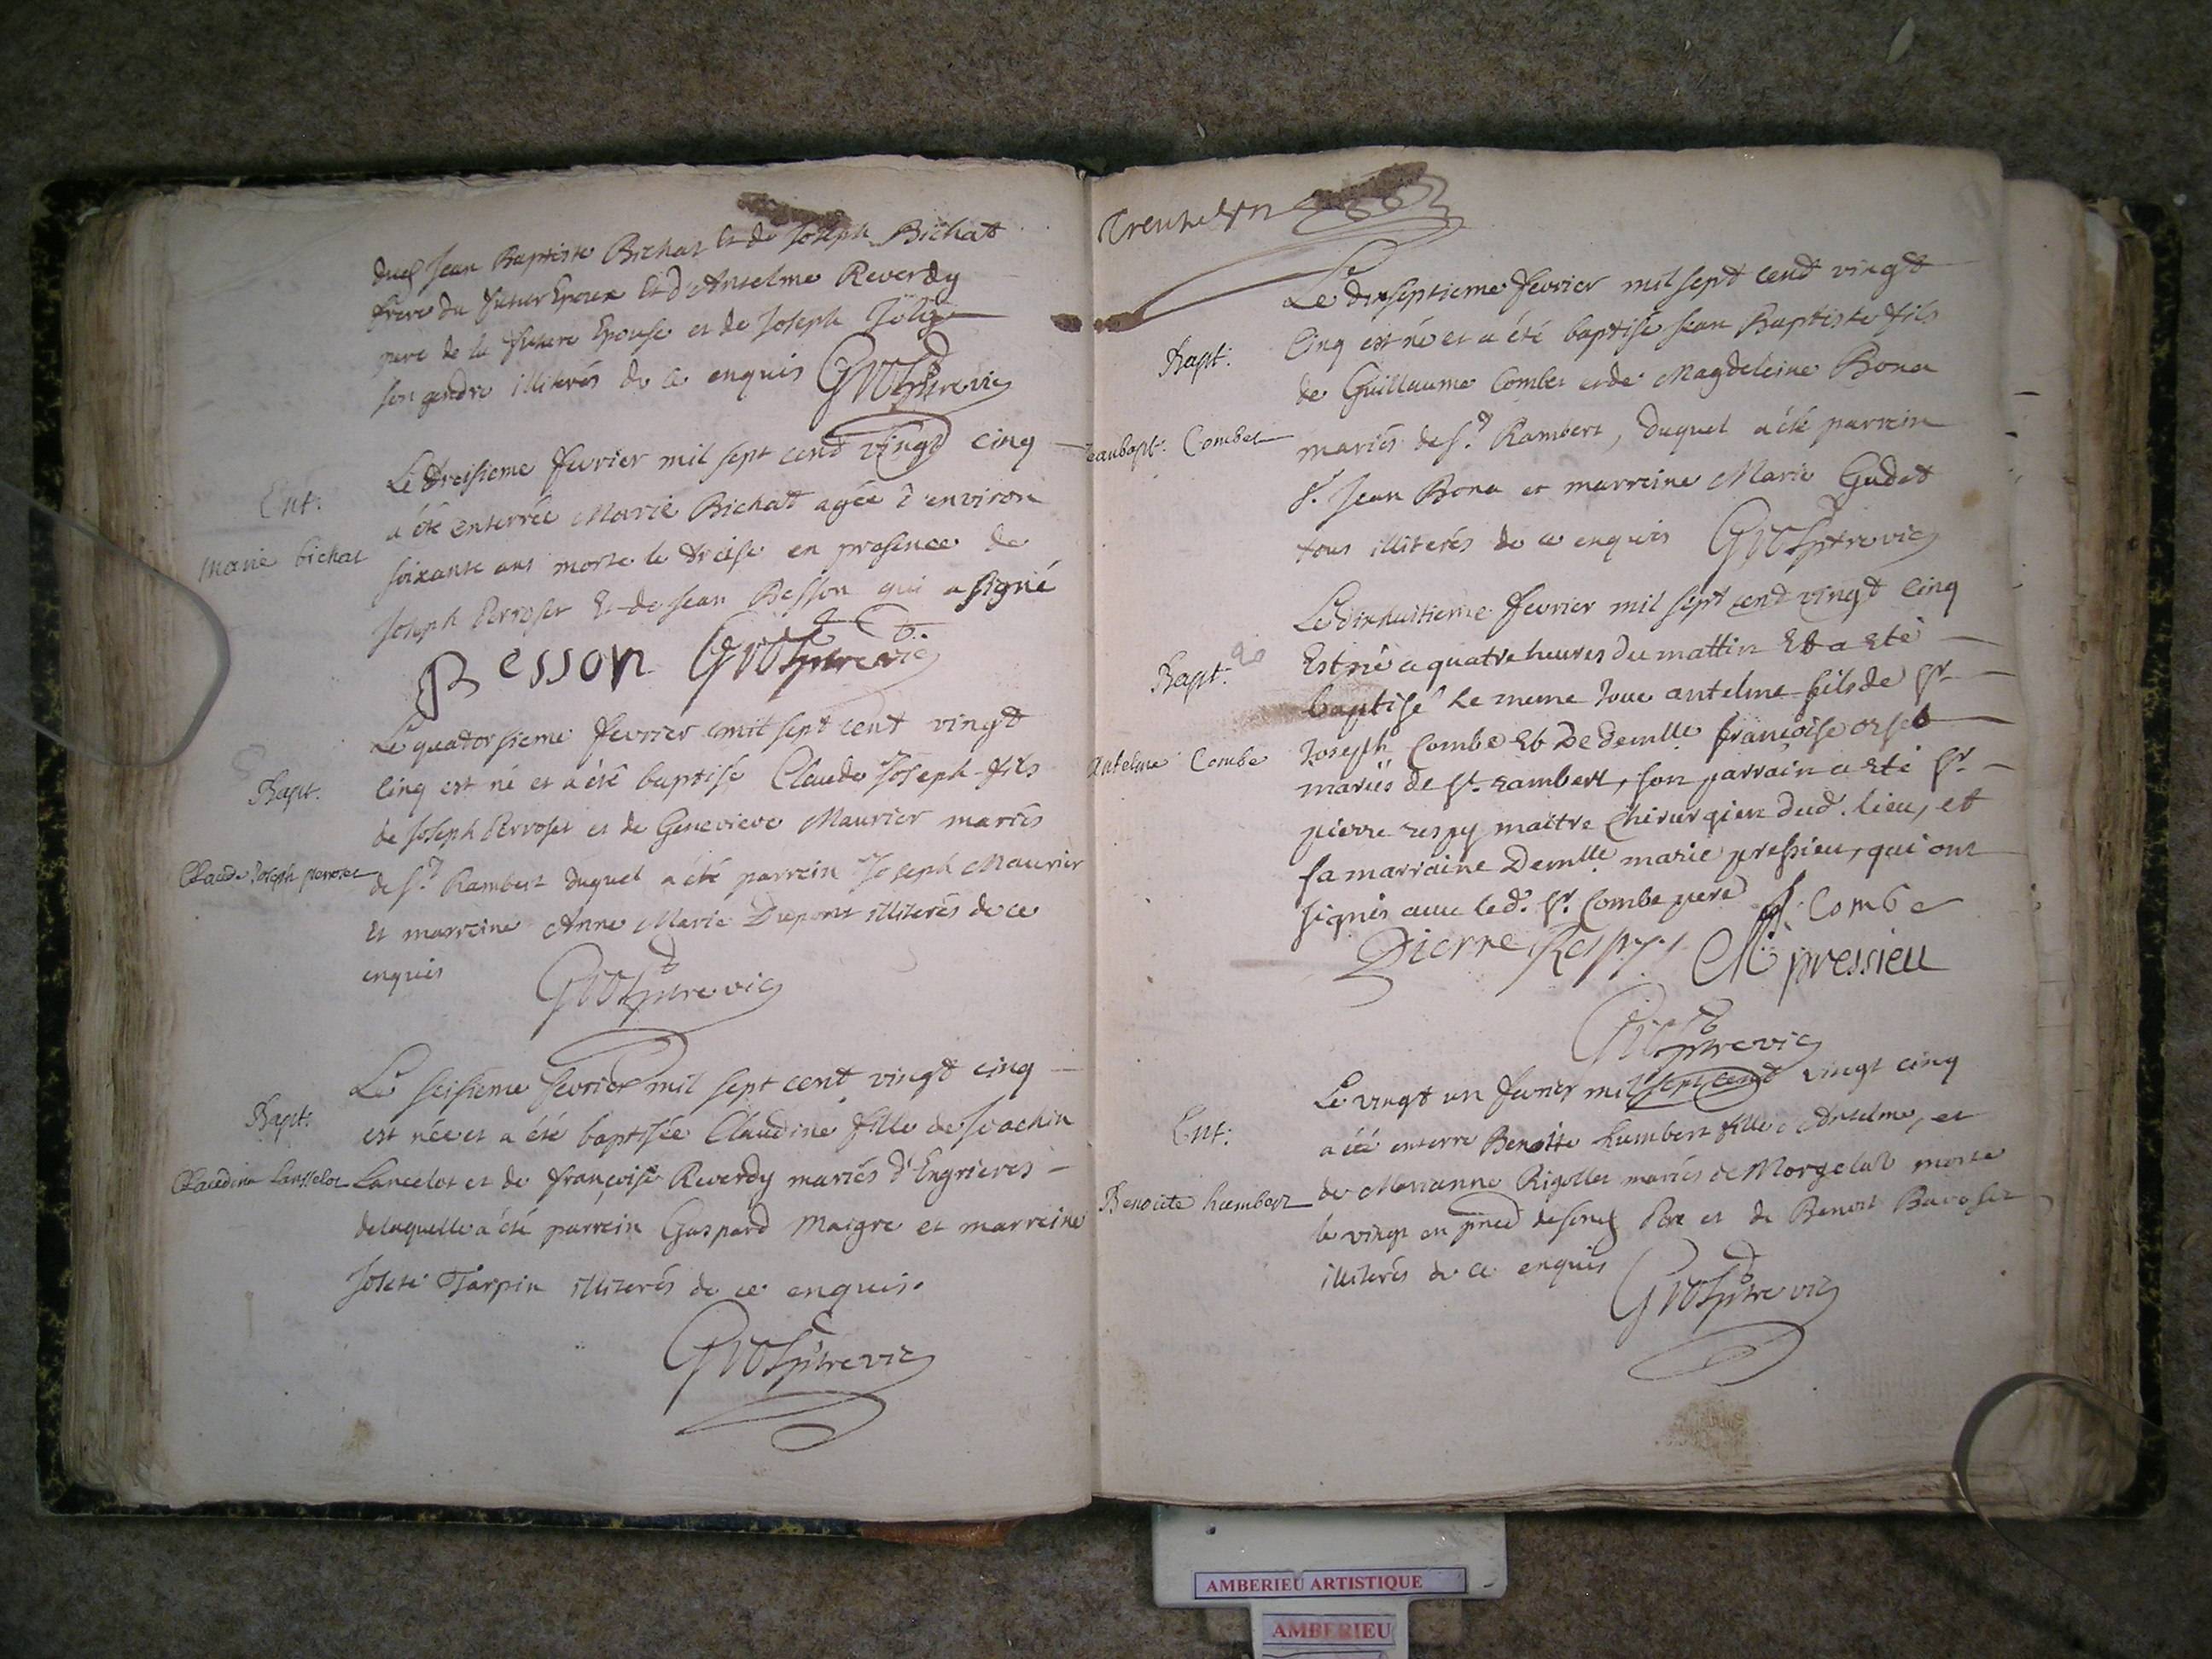 dud Jean Baptiste Bichat et de Joseph Bichat
frere du futur Epoux et d'Antelme Reverdy
pere de la future Epouse et de Joseph Joly
son gendre illiterés de ce enquis
Ent:
Marie bichat
Le treisieme fevrier mil sept cend vingt cinq
a été enterrée Marie Bichat agée d'environ
soixante ans morte le treise en presence de
Joseph Perroset et de Jean Besson qui a signé
Besson
Bapt.
Claude Joseph perroset
Le quatorsieme fevrier mil sept cent vingt
cinq est né et a été baptisé Claude Joseph fils
de Joseph Perroset et de Genevieve Maurier mariés
de St Rambert duquel a été parrein Joseph Maurier
et marreine Anne Marie Dupont illiterés de ce
enquis
Bapt:
Claudine Lansselot
Le seisieme fevrier mil sept cent vingt cinq
est née et a été baptisée Claudine fille de Joachin
Lancelot et de françoise Reverdy mariés d'Engrieres
de laquelle a été parrein Gaspard Maigre et marreine
Josete Tarpin illiterés de ce enquis.
Bapt:
Jeanbapt: Combet
Le dixseptieme fevrier mil sept cend vingt
cinq est né et a été baptisé Jean Baptiste fils
de Guillaume Combet et de Magdeleine Bona
mariés de St Rambert, duquel a été parrein
Sr. Jean Bona et marreine Marie Gudet
tous illiterés de ce enquis
Bapt. 20
Antelme Combe
Le dixhuitieme fevrier mil sept cend vingt cinq
Est né a quatre heures du mattin Et a eté
baptisé Le meme Jour antelme fils de Sr
Joseph Combe Et De demlle françoise orset
mariés de St rambert, son parrain a eté Sr
pierre respy maitre chirurgien dud. lieu, et
sa marraine Demlle marie pressieu, qui ont
signés avec led. Sr. Combe pere
J. Combe
Pierre Respy
M pressieu
Ent:
Benoite Humbert
Le vingt un fevrier mil sept cend vingt cinq
a été enterre Benoite humbert fille Antelme, et
de Marianne Rigollet mariés de Morgelat morte
le vingt en pnce de sond Pere et de Benoit Bavoset
illiterés de ce enquis
AMBERIEU ARTISTIQUE
AMBERIEU